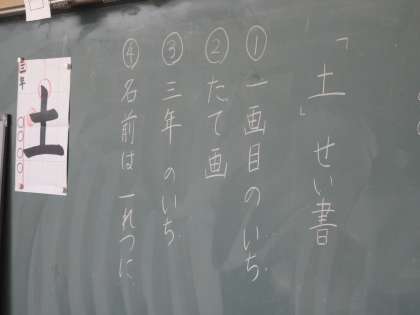 「土」せい書
① 一画目のいち
② たて画
③ 三年 のいち
④ 名前は 一れつに
土
三年
○○○○